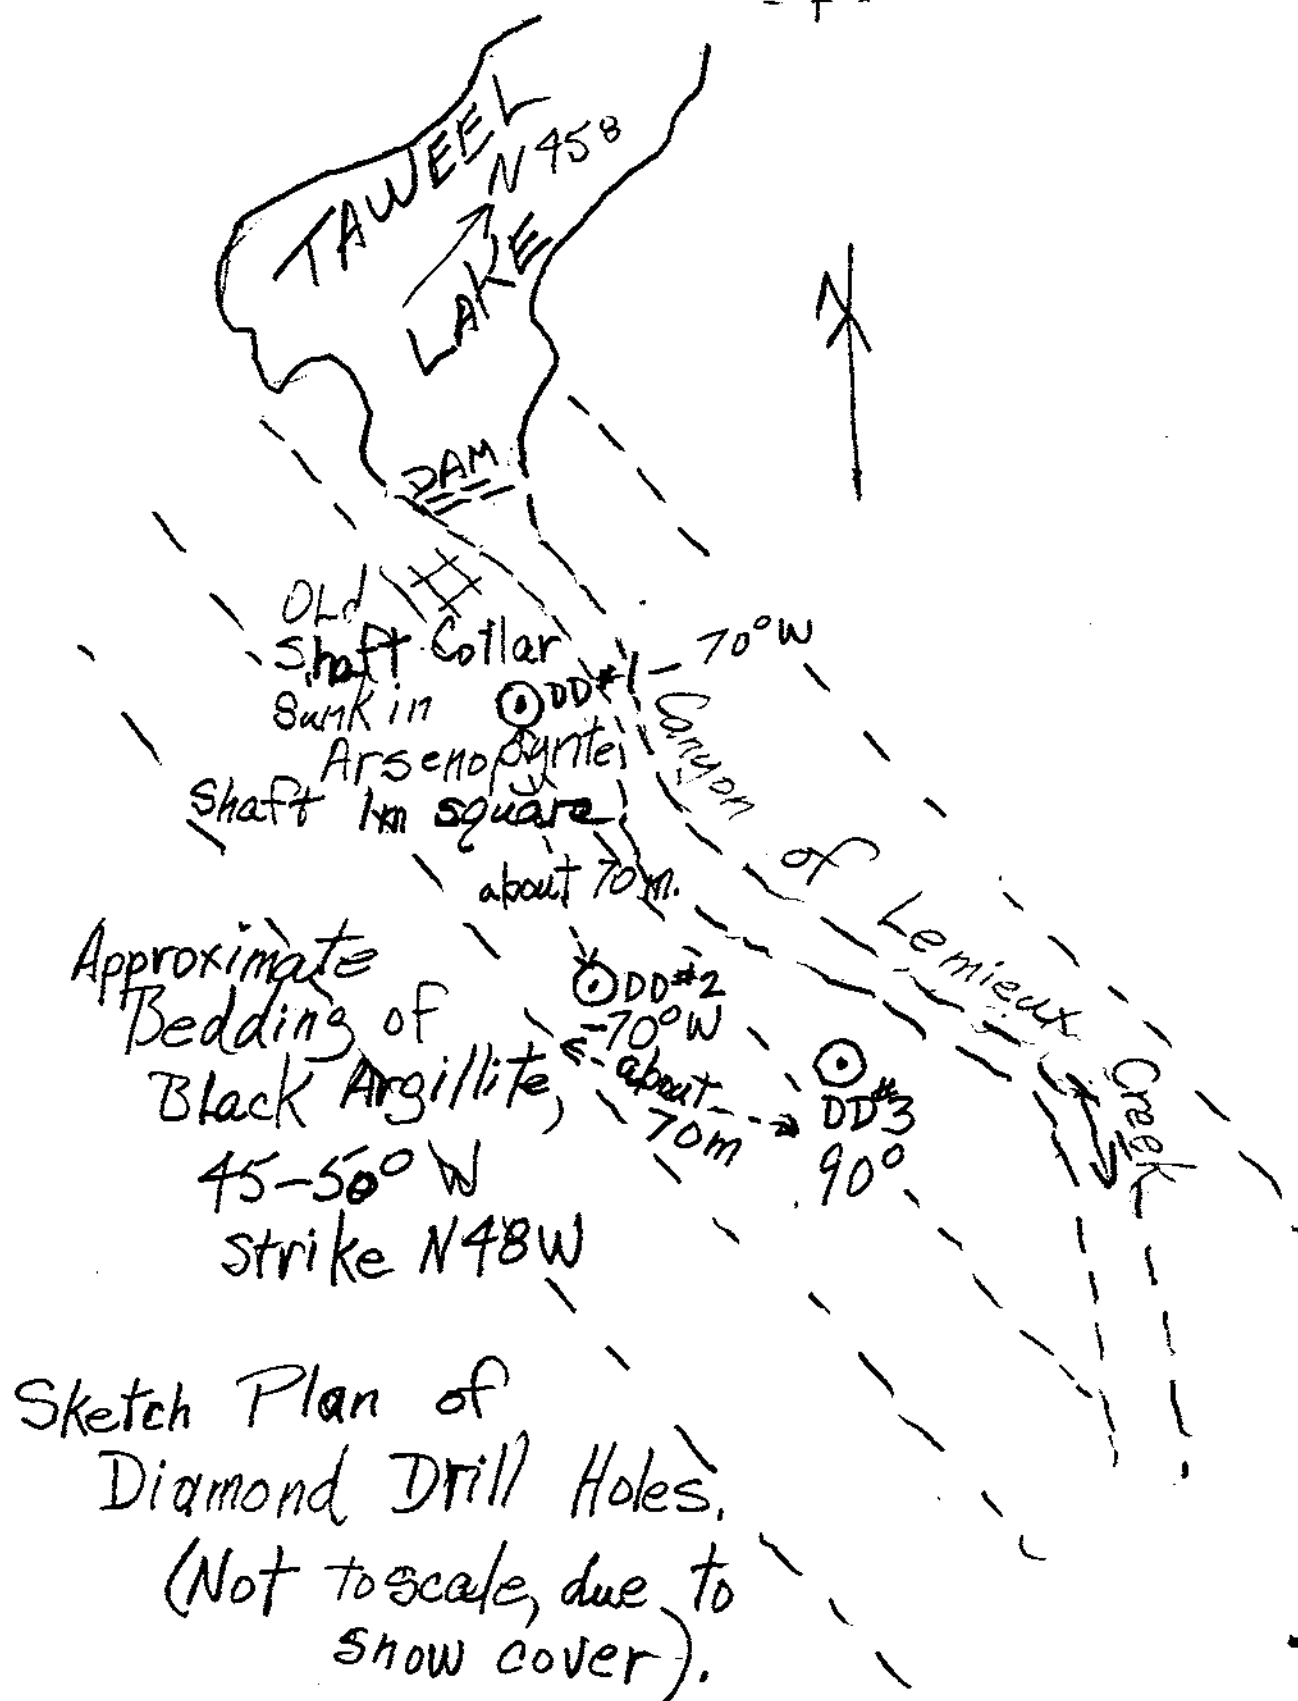 - 4 -
TAWEEL
N 45°
LAKE
N
DAM
Old
Shaft Collar
Sunk in
Arsenopyrite
Shaft 1m square
DD#1 - 70°W
about 70m.
Canyon of Lemieux Creek
DD#2
-70°W
about
70m
DD#3
90°
Approximate
Bedding of
Black Argillite,
45-50° W
Strike N48W
Sketch Plan of
Diamond Drill Holes.
(Not to scale, due to
snow cover).